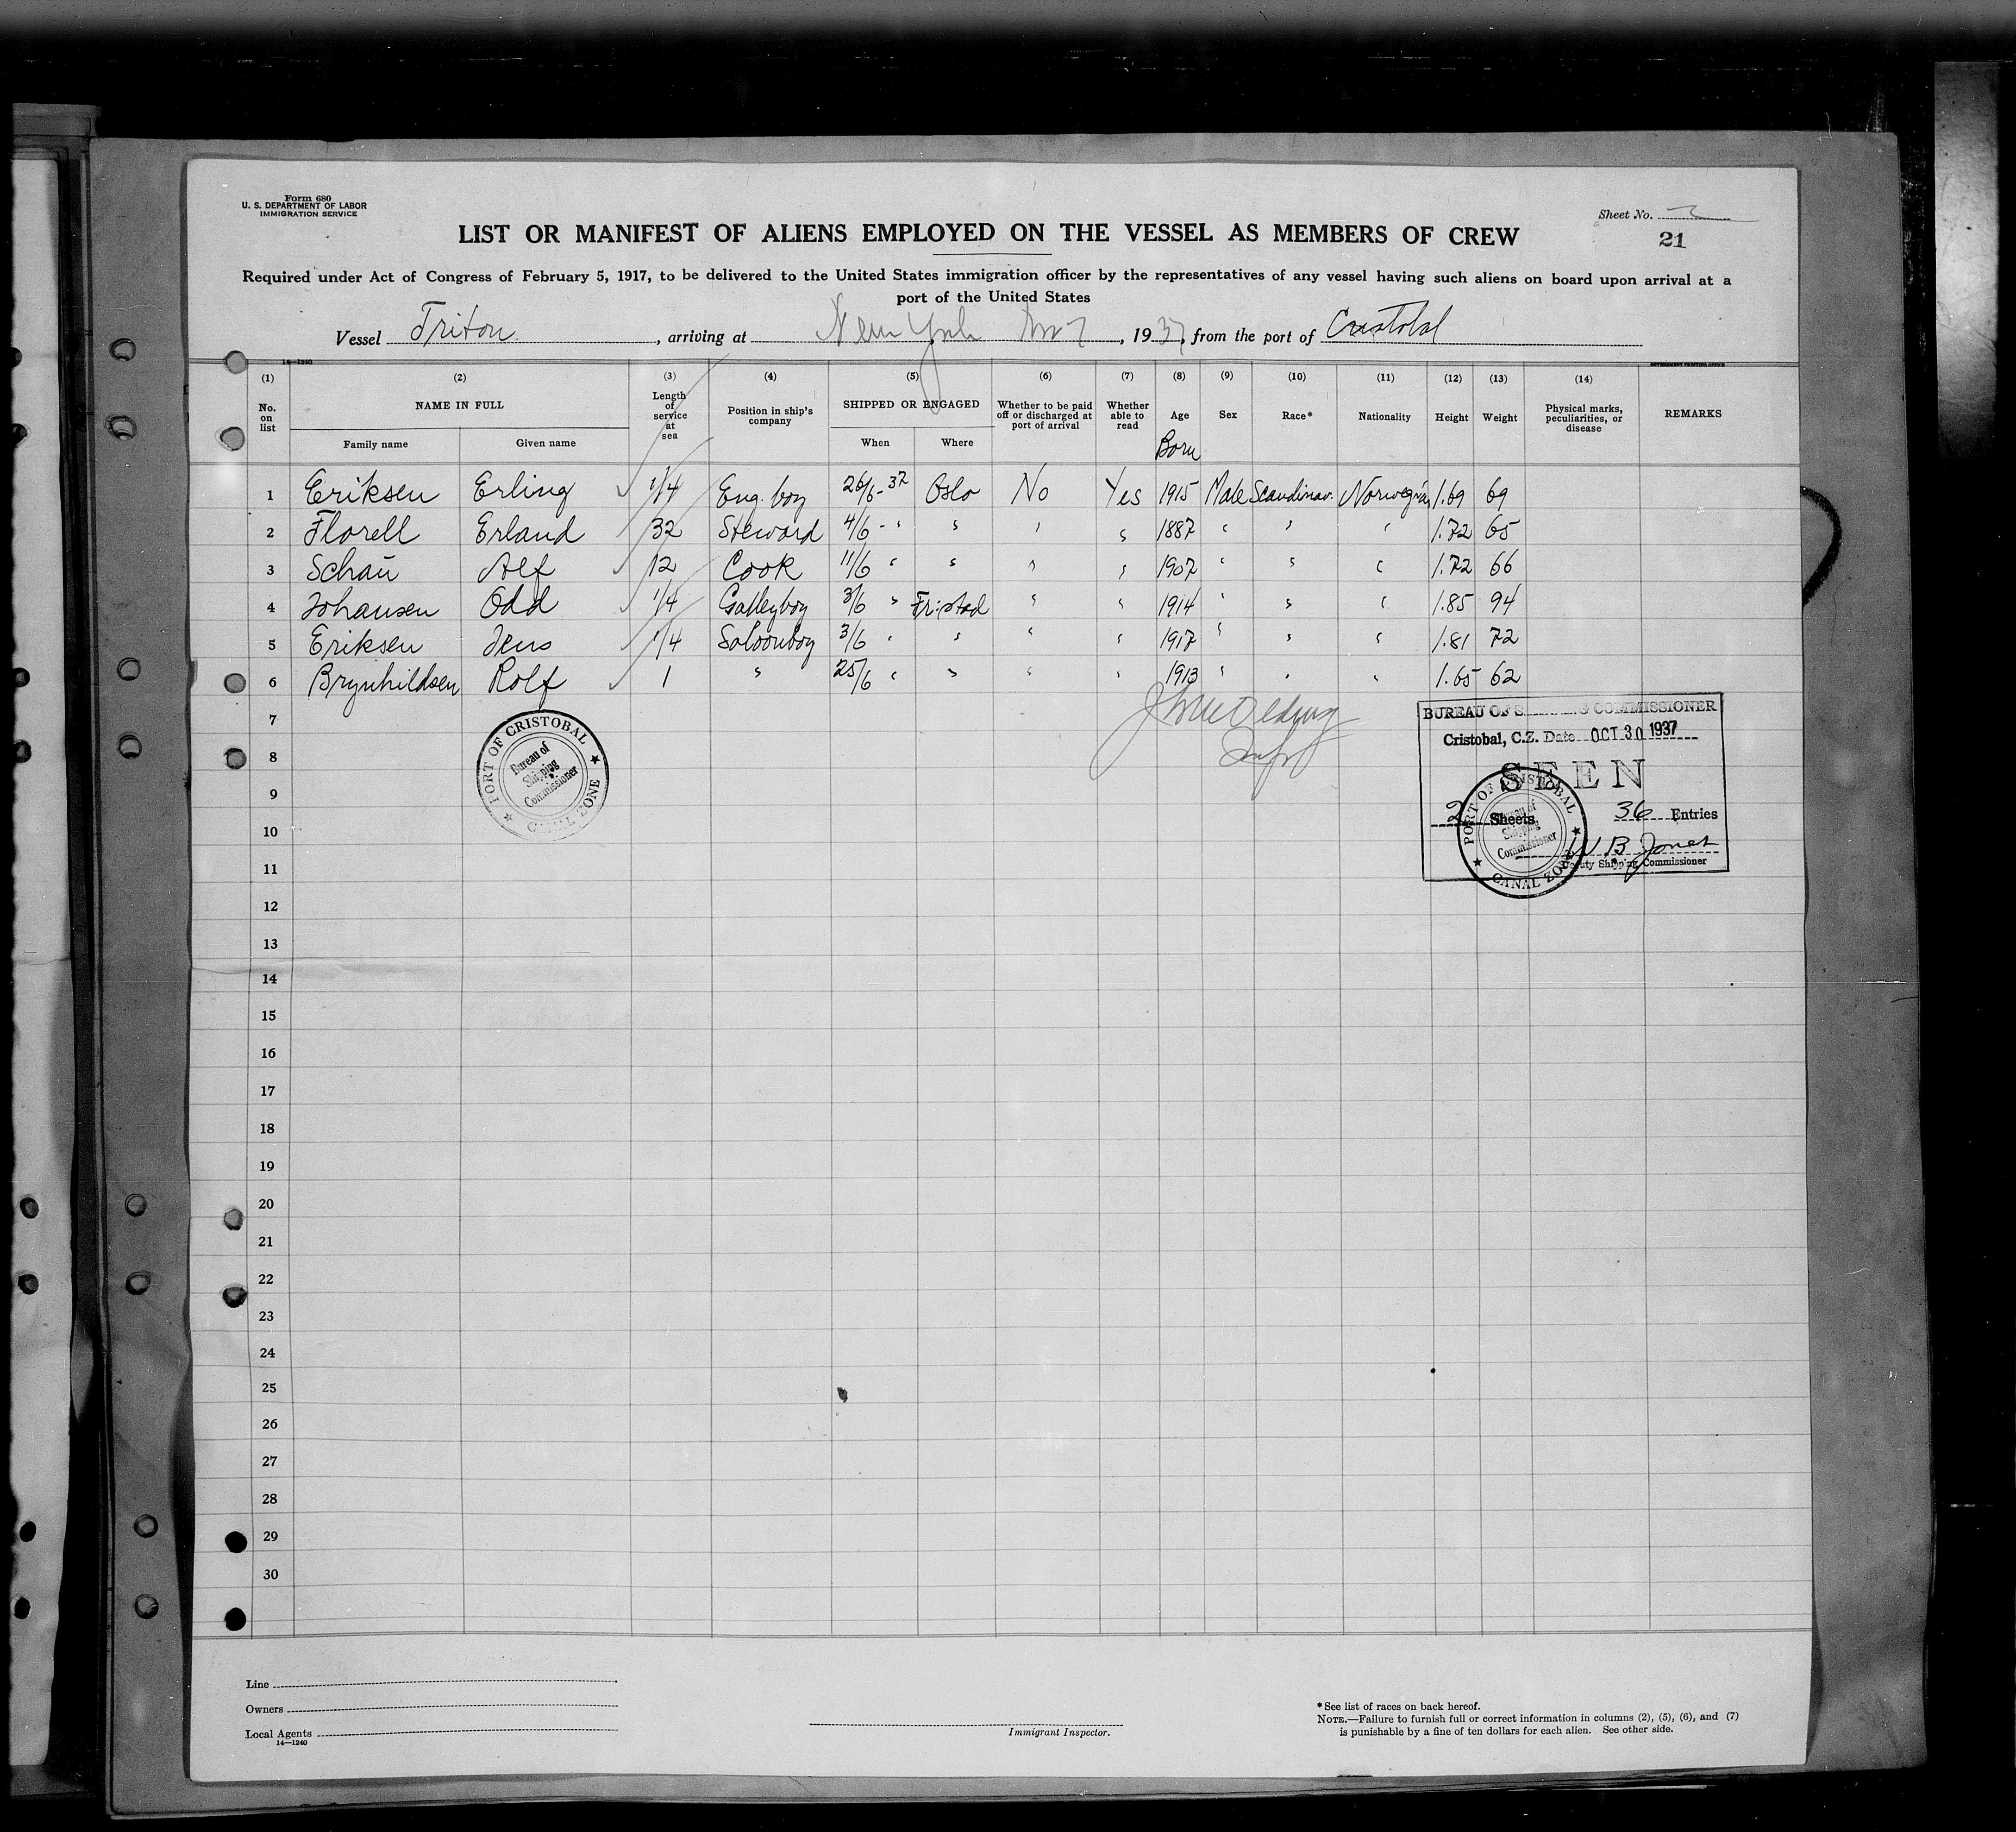 Form 680
U. S. DEPARTMENT OF LABOR
IMMIGRATION SERVICE
Sheet No. 2
21
LIST OR MANIFEST OF ALIENS EMPLOYED ON THE VESSEL AS MEMBERS OF CREW
Required under Act of Congress of February 5, 1917, to be delivered to the United States immigration officer by the representatives of any vessel having such aliens on board upon arrival at a
port of the United States
Vessel Triton, arriving at New York Nov 7, 1937, from the port of Cristobal
14—1240
(1) (2) (3) (4) (5) (6) (7) (8) (9) (10) (11) (12) (13) (14)
No. on list NAME IN FULL Length of service at sea Position in ship's company SHIPPED OR ENGAGED Whether to be paid off or discharged at port of arrival Whether able to read Age Sex Race* Nationality Height Weight Physical marks, peculiarities, or disease REMARKS
Family name Given name When Where Born
1 Eriksen Erling 1/4 Eng. boy 26/6-37 Oslo No Yes 1915 Male Scandinav. Norwegian 1.69 69
2 Florell Erland 32 Steward 4/6 - " " " " 1887 " " " 1.72 65
3 Schau Alf 12 Cook 11/6 " " " " 1907 " " " 1.72 66
4 Johansen Odd 1/4 Galleyboy 3/6 " Fr:stad " " 1914 " " " 1.85 94
5 Eriksen Jens 1/4 Saloonboy 3/6 " " " " 1917 " " " 1.81 72
6 Brynhildsen Rolf 1 " 25/6 " " " " 1913 " " " 1.65 62
7
8
9
10
11
12
13
14
15
16
17
18
19
20
21
22
23
24
25
26
27
28
29
30
PORT OF CRISTOBAL
Bureau of
Shipping
Commissioner
CANAL ZONE
BUREAU OF S G COMMISSIONER
Cristobal, C.Z. Date OCT 30 1937
SEEN
2 Sheets 36 Entries
W B Jones
Deputy Shipping Commissioner
PORT OF CRISTOBAL
Bureau of
Shipping
Commissioner
CANAL ZONE
Line
Owners
Local Agents
14—1240
Immigrant Inspector.
*See list of races on back hereof.
NOTE.—Failure to furnish full or correct information in columns (2), (5), (6), and (7)
is punishable by a fine of ten dollars for each alien. See other side.